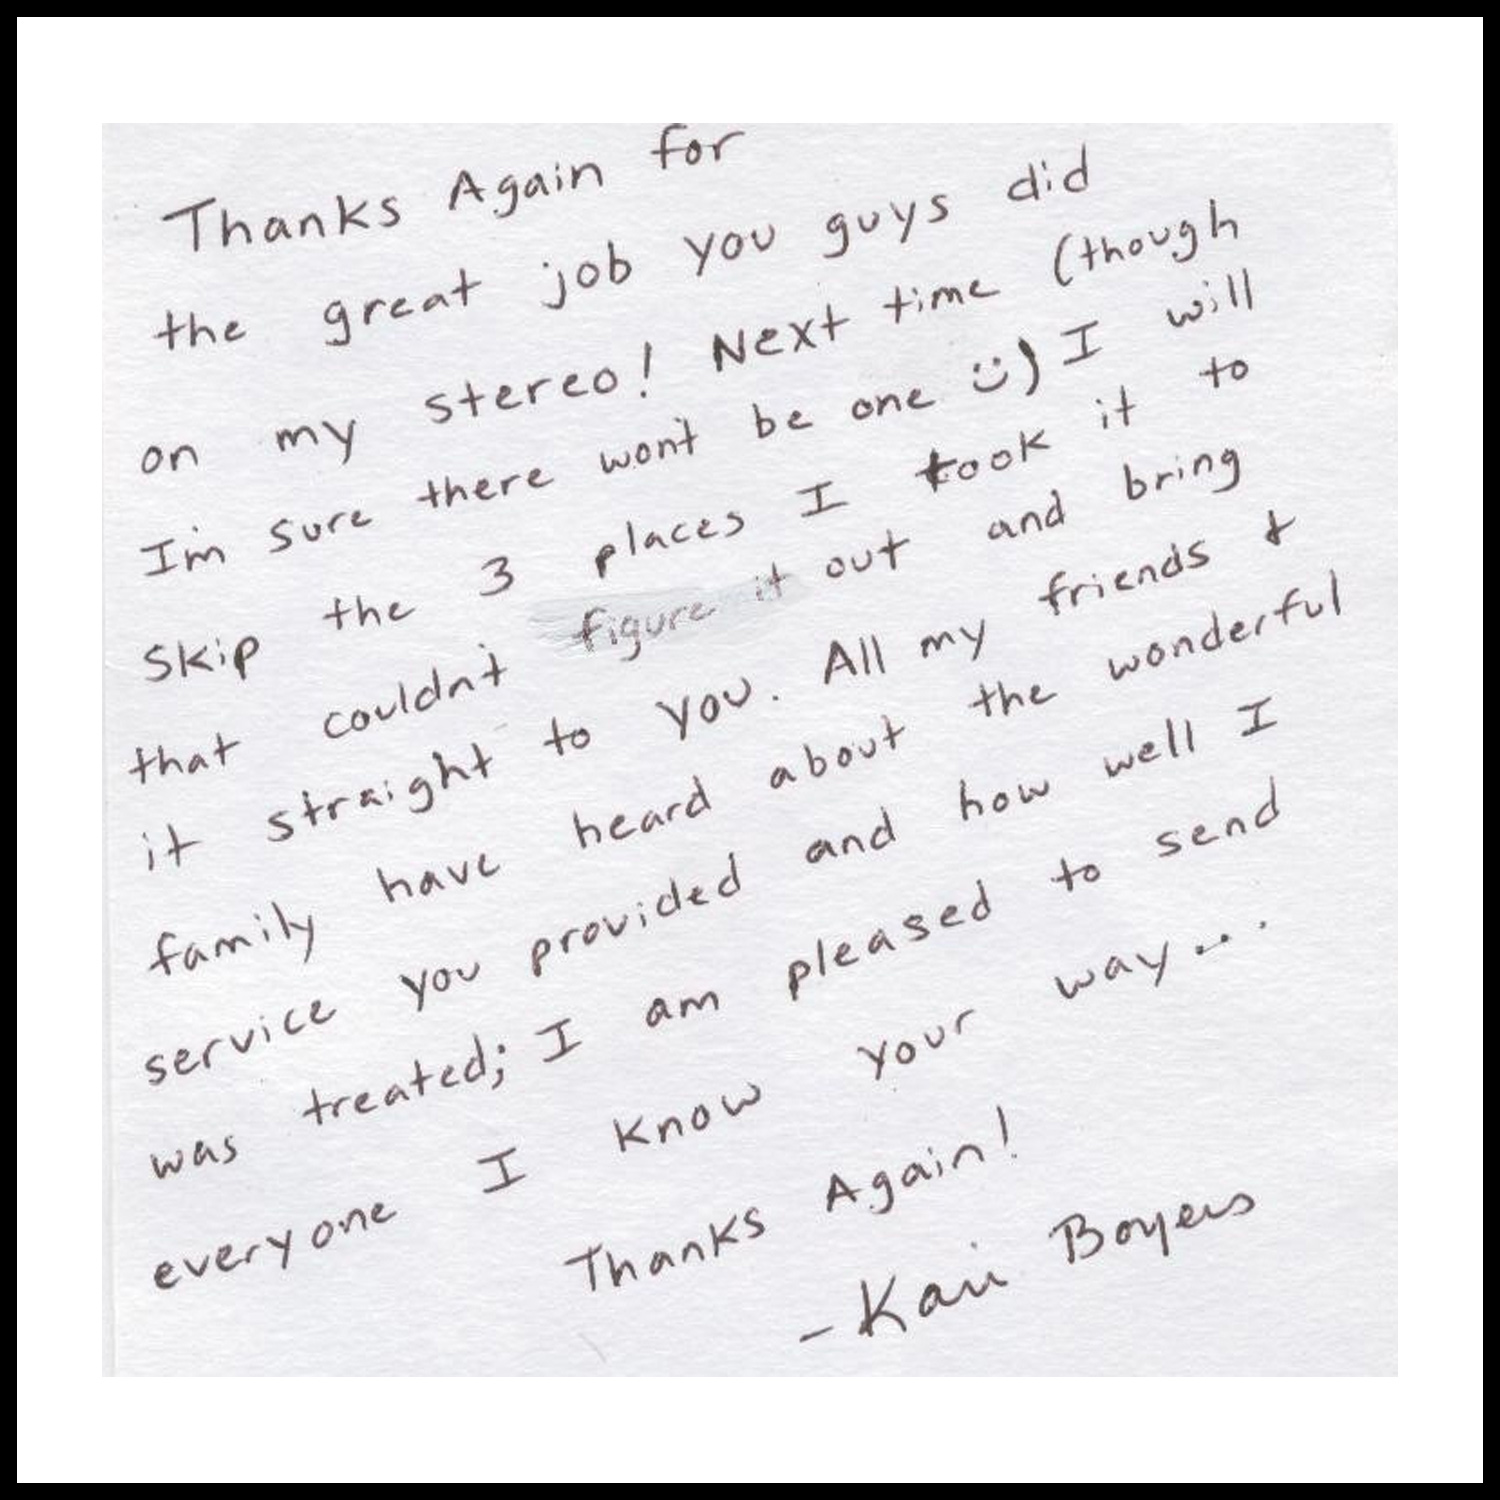 Thanks Again for
the great job you guys did
on my stereo! Next time (though
I'm sure there won't be one ü) I will
skip the 3 places I took it to
that couldn't figure it out and bring
it straight to you. All my friends &
family have heard about the wonderful
service you provided and how well I
was treated; I am pleased to send
everyone I know your way...
Thanks Again!
-Kari Boyers